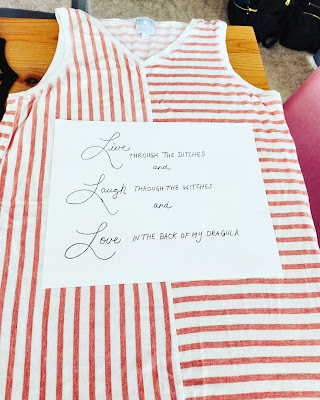 Live THROUGH THE DITCHES
and
Laugh THROUGH THE WITCHES
and
Love IN THE BACK OF MY DRAGULA